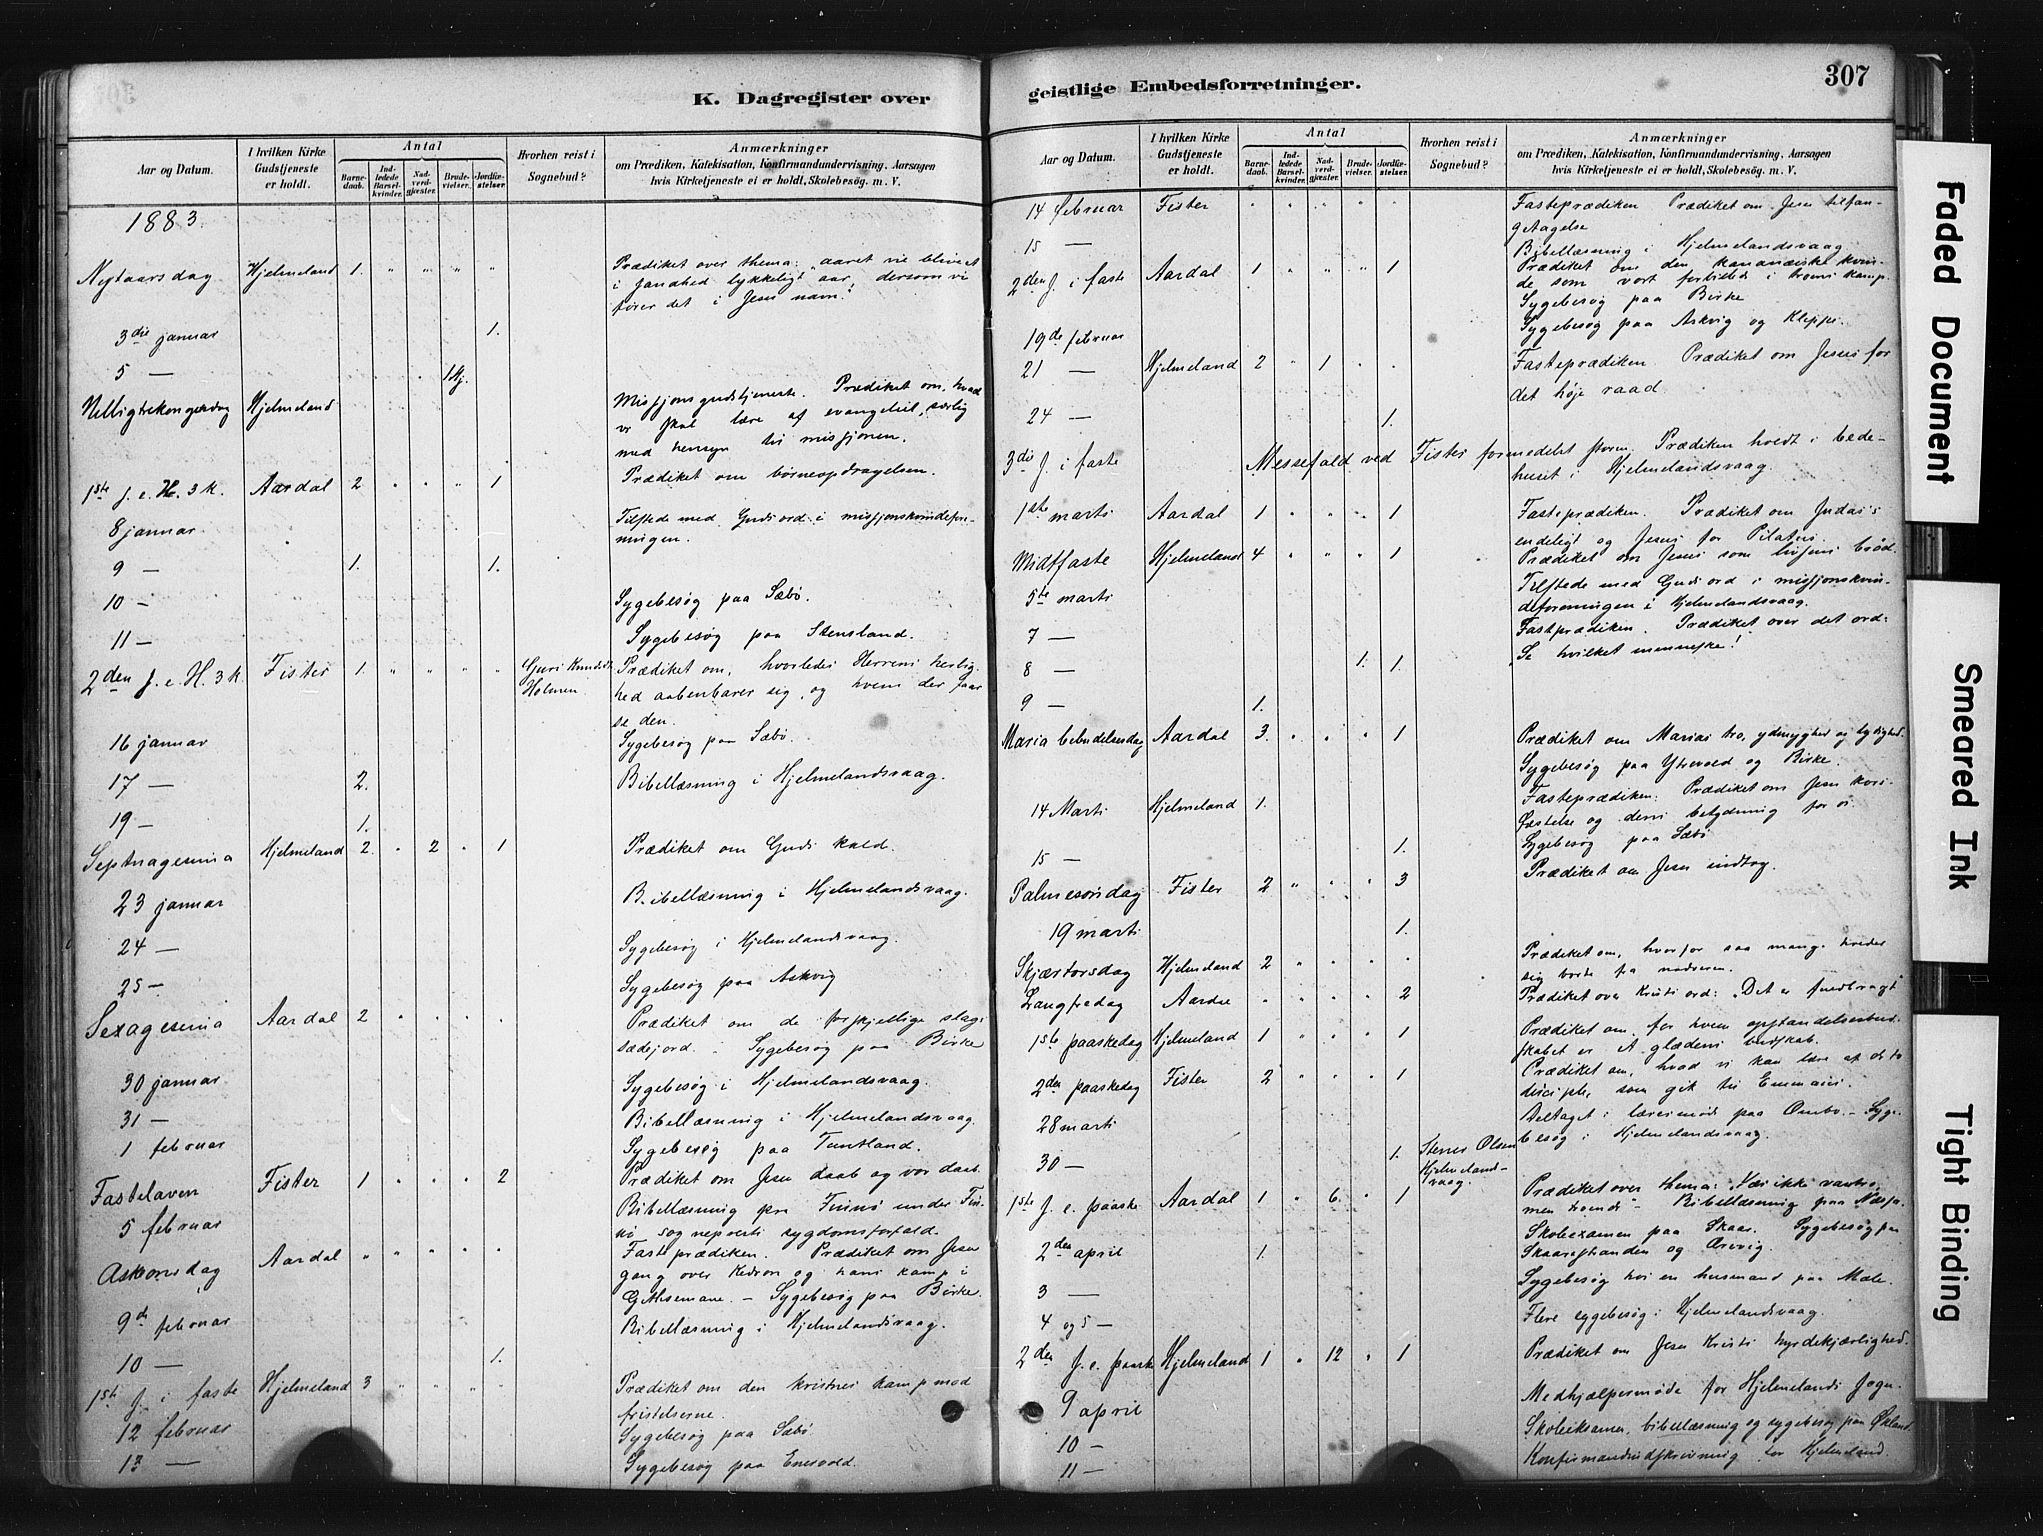 K. Dagregister over
Aar og Datum.
I hvilken Kirke Gudstjeneste er holdt.
Antal
Barnedaab.
Indledede Barselkvinder.
Nadverdgjæster.
Brudevielser.
Jordfæstelser.
Hvorhen reist i Sognebud?
Anmærkninger
om Prædiken, Katekisation, Konfirmandundervisning, Aarsagen
hvis Kirketjeneste ei er holdt, Skolebesög. m. V.
1883
Nytaarsdag Hjelmeland 1. " " " " Prædiket over thema: "aaret vil blive et
i sandhed lykkeligt aar, dersom vi
fører det i Jesu navn."
3die januar 1.
5 — 1 Hj.
Helligtrekongersdag Hjelmeland Missjonsgudstjeneste. Prædiket om, hvad
vi skal lære af evangeliet, særlig
med hensyn til missjonen.
1ste s. e. H. 3 k. Aardal 2 " " " 1 Prædiket om børneopdragelsen.
8 januar. Tilstede med Guds ord i missjonskvindefore-
ningen.
9 — 1. 1.
10 — Sygebesøg paa Sæbø.
11 — Sygebesøg paa Stensland.
2den s. e. H. 3 k. Fister 1. " " " " Guri Knudsdt. Holmen. Prædiket om, hvorledes Herrens herlig-
hed aabenbarer sig, og hvem der faar
se den.
16 januar Sygebesøg paa Sæbø.
17 — 2. Bibellæsning i Hjelmelandsvaag.
19 — 1.
Septuagesima Hjelmeland 2. " 2 " 1 Prædiket om Guds kald.
23 januar Bibellæsning i Hjelmelandsvaag.
24 — Sygebesøg i Hjelmelandsvaag.
25 — Sygebesøg paa Askvig
Sexagesima Aardal 2 " " " " Prædiket om de forskjellige slags
sædejord. Sygebesøg paa Birke
30 januar Sygebesøg i Hjelmelandsvaag.
31 — Bibellæsning i Hjelmelandsvaag.
1 februar Sygebesøg paa Tuntland.
Fastelaven Fister 1 " " " 2 Prædiket om Jesu daab og vor daab.
5 februar Bibellæsning paa Finnø under Fin-
nø sogneprests sygdomsforfald.
Askonsdag Aardal " " " " " Fasteprædiken. Prædiket om Jesu
gang over Kedron og hans kamp i
Gethsemane. — Sygebesøg paa Birke.
9de februar Bibellæsning i Hjelmelandsvaag.
10 — 1.
1ste s. i faste Hjelmeland 3 " " " " Prædiket om den kristnes kamp mod
fristelserne.
12 februar Sygebesøg paa Sæbø.
13 — Sygebesøg paa Enesvold.
geistlige Embedsforretninger.
307
Aar og Datum.
I hvilken Kirke Gudstjeneste er holdt.
Antal
Barnedaab.
Indledede Barselkvinder.
Nadverdgjæster.
Brudevielser.
Jordfæstelser.
Hvorhen reist i Sognebud?
Anmærkninger
om Prædiken, Katekisation, Konfirmandundervisning, Aarsagen
hvis Kirketjeneste ei er holdt, Skolebesög. m. V.
14 februar Fister " " " " " Fasteprædiken Prædiket om Jesu tilfan-
getagelse
15 — Bibellæsning i Hjelmelandsvaag
2den s. i faste Aardal 1 " " " 1 Prædiket om den kananæiske kvin-
de som vort forbillede i troens kamp.
Sygebesøg paa Birke
19de februar Sygebesøg paa Askvig og Kleppe.
21 — Hjelmeland 2 " 1 " " Fasteprædiken Prædiket om Jesus for
det høje raad
24 — 1.
3die s. i faste Messefald ved Fister formedelst storm. Prædiken holdt i bede-
huset i Hjelmelandsvaag.
1ste marts Aardal 1 " " " 1 Fasteprædiken. Prædiket om Judas's
endeligt og Jesus for Pilatus.
Midtfaste Hjelmeland 4 " " " 1 Prædiket om Jesus som livsens brød.
5te marts Tilstede med Guds ord i missjonskvin-
deforeningen i Hjelmelandsvaag.
7 — Fastprædiken. Prædiket over det ord:
"Se hvilket menneske!"
8 — 1. 1.
9 — 1.
Maria bebudelsesdag Aardal 3. " " " 1 Prædiket om Marias tro, ydmyghed og lydighed.
Sygebesøg paa Ytrevold og Birke.
14 Marts Hjelmeland 1. Fasteprædiken: Prædiket om Jesu kors-
fæstelse og dens betydning for os.
15 — 1. Sygebesøg paa Sæbø
Palmesøndag Fister 2 " " " 3 Prædiket om Jesu indtog.
19 marts 1.
Skjærtorsdag Hjelmeland 2 " " " " Prædiket om, hvorfor saa mange holder
sig borte fra nadveren.
Langfredag Aardal " " " " 2 Prædiket over Kristi ord: "Det er fuldbragt"
1ste paaskedag Hjelmeland 1 " " " 1 Prædiket om, for hvem opstandelsesbud-
skabet er et glædens budskab.
2den paaskedag Fister 2 " " " 1 Prædiket om, hvad vi kan lære af de to
disciple, som gik til Emmaus.
28 marts Deltaget i lærermøde paa Ombo. — Syge-
besøg i Hjelmelandsvaag.
30 — 1. Stener Olsen Hjelmelands-vaag.
1ste s. e. paaske Aardal 1 " 6. " 1 Prædiket over thema: "Vær ikke vantro,
men troende" — Bibellæsning paa Næsje.
2den april 1. Skoleexamen paa Skaar. Sygebesøg paa
Skaarestranden og Ørevig.
3 — Sygebesøg hos en husmand paa Mæle.
4 og 5 — Flere sygebesøg i Hjelmelandsvaag.
2den s. e. paaske Hjelmeland 1 " 12 " 1 Prædiket om Jesu Kristi hyrdekjærlighed.
9 april Medhjælpermøde for Hjelmelands sogn.
10 — Skoleeksamen, bibellæsning og sygebesøg paa Øxland
11 — Konfirmandindskrivning for Hjelmeland.
Faded Document
Smeared Ink
Tight Binding